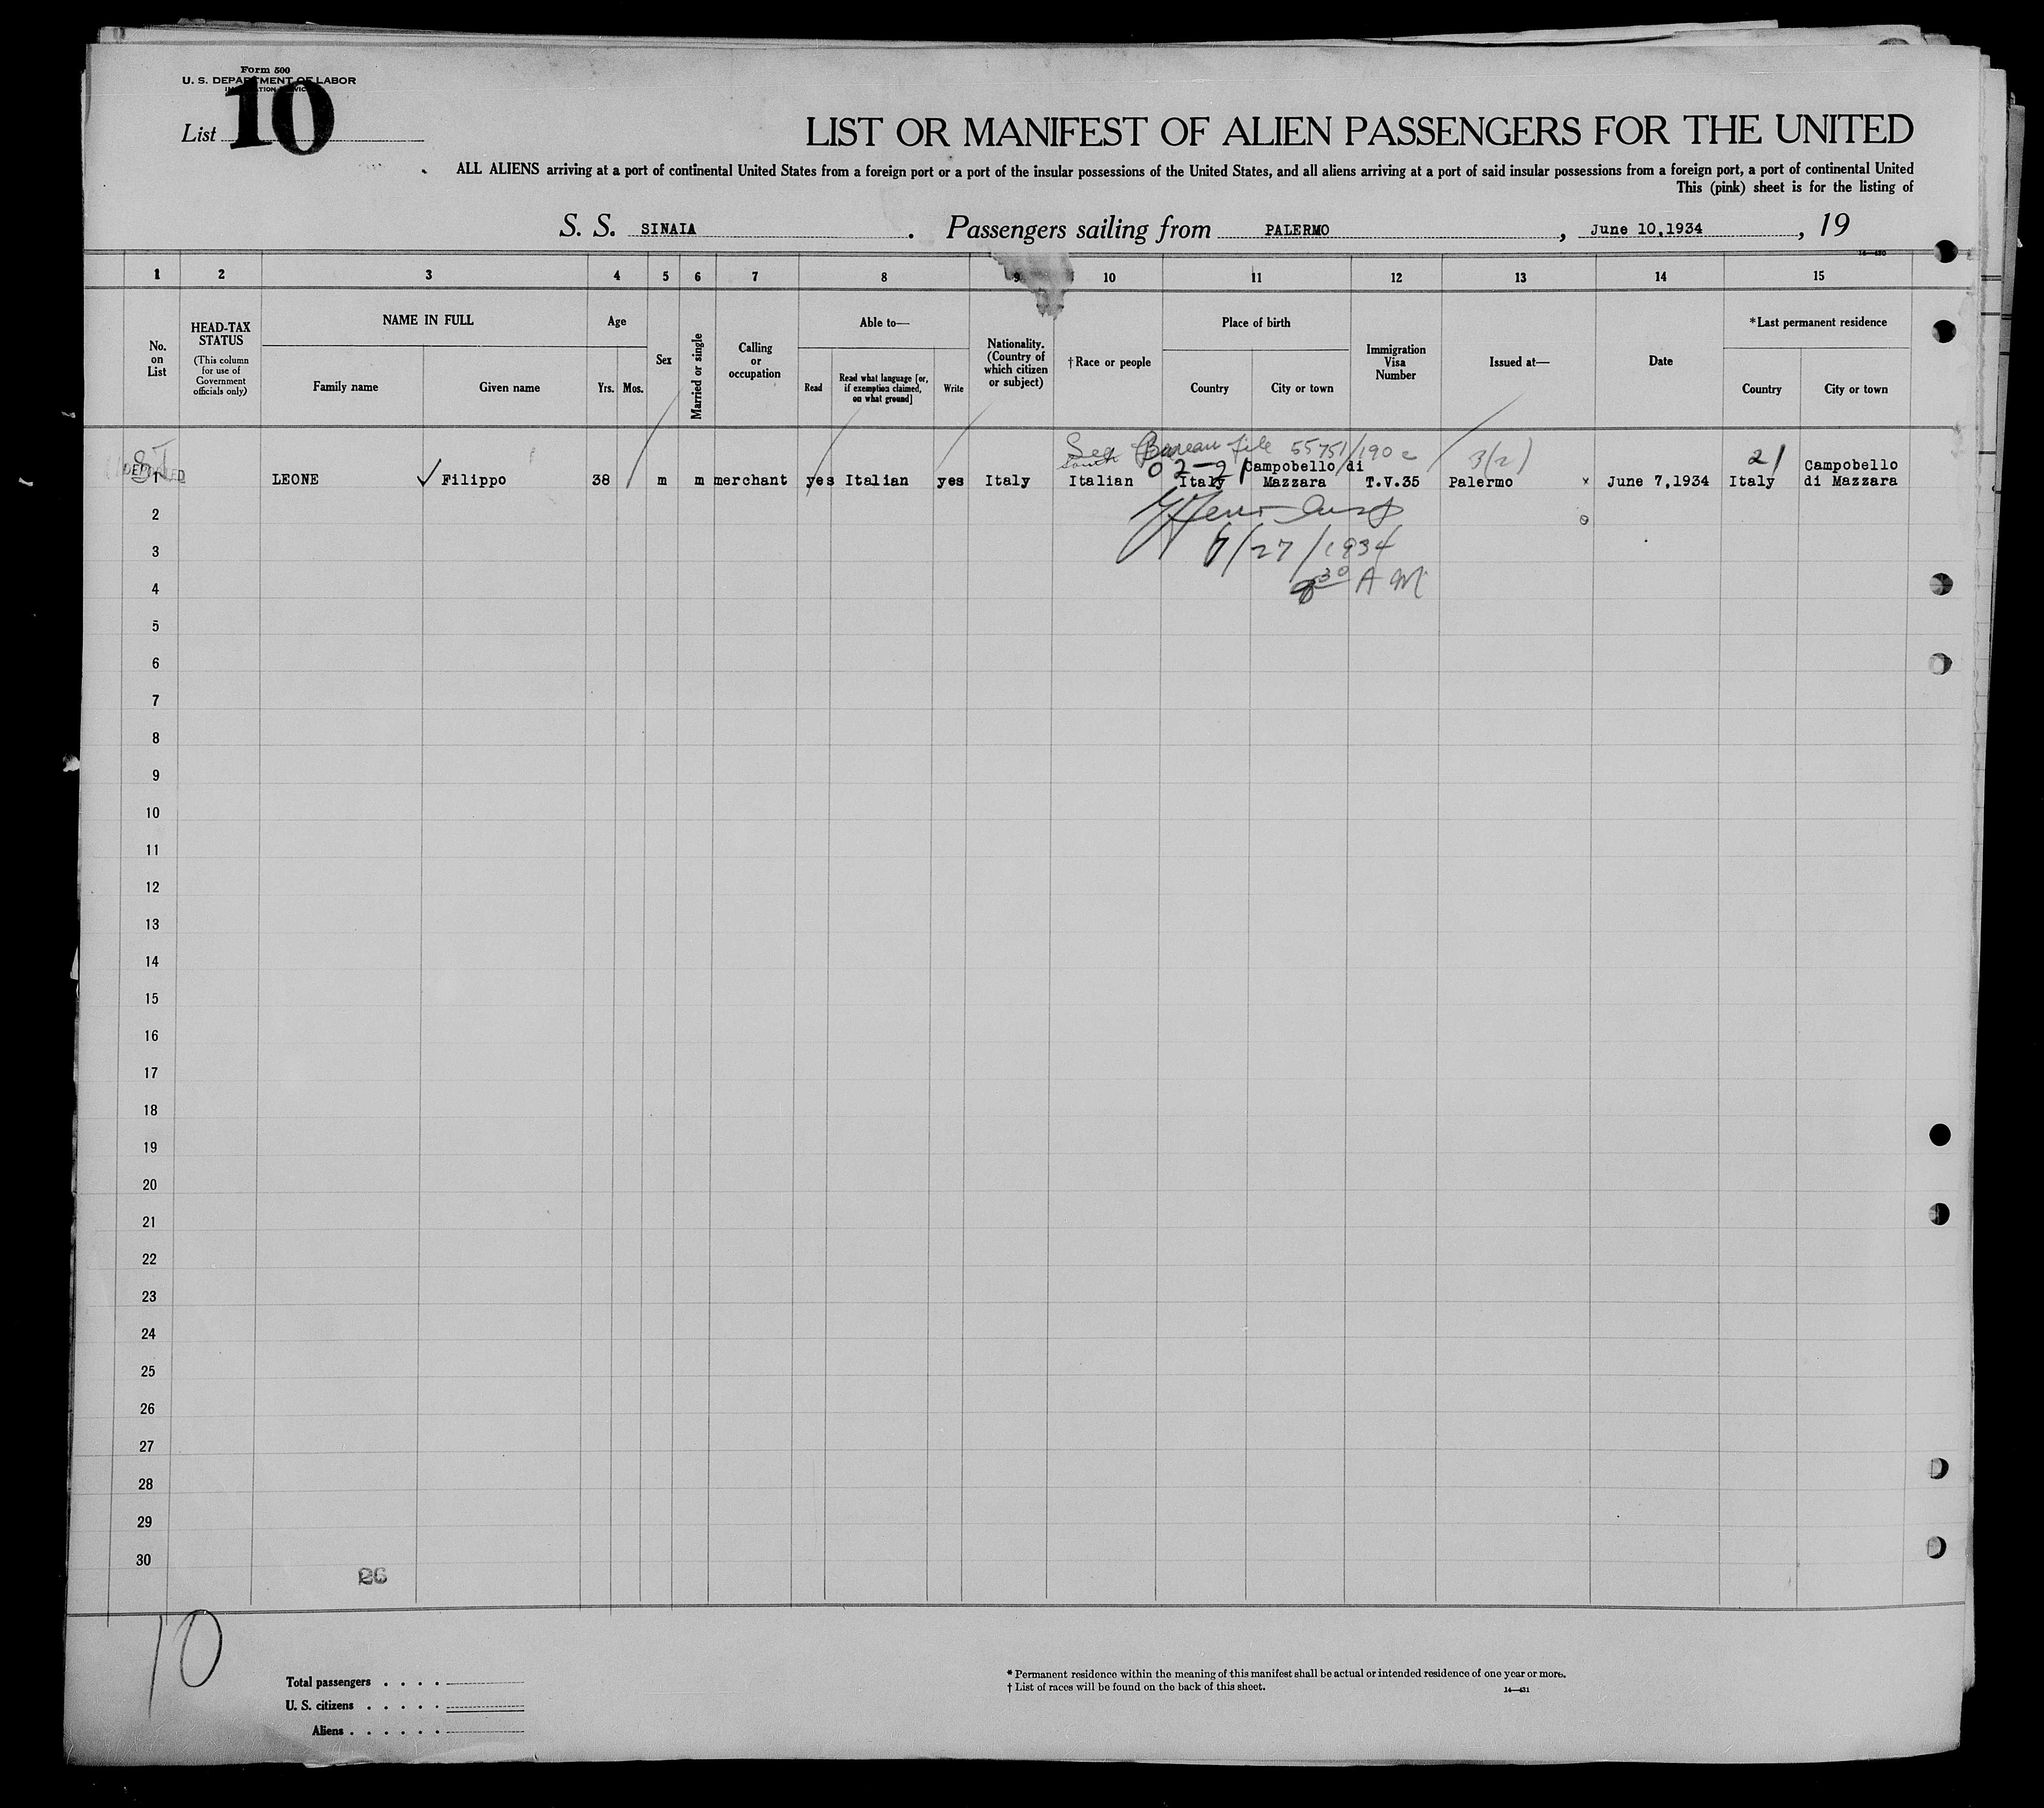 Form 500
U. S. DEPARTMENT OF LABOR
List 10
LIST OR MANIFEST OF ALIEN PASSENGERS FOR THE UNITED
ALL ALIENS arriving at a port of continental United States from a foreign port or a port of the insular possessions of the United States, and all aliens arriving at a port of said insular possessions from a foreign port, a port of continental United
This (pink) sheet is for the listing of
S. S. SINAIA. Passengers sailing from PALERMO, June 10,1934, 19
1 2 3 4 5 6 7 8 9 10 11 12 13 14 15
No. on List
HEAD-TAX STATUS
(This column for use of Government officials only)
NAME IN FULL
Family name
Given name
Age
Yrs. Mos.
Sex
Married or single
Calling or occupation
Able to—
Read
Read what language [or, if exemption claimed, on what ground]
Write
Nationality. (Country of which citizen or subject)
†Race or people
Place of birth
Country
City or town
Immigration Visa Number
Issued at—
Date
*Last permanent residence
Country
City or town
See Bureau file 55751/190
South
02-21
3(2)
21
DEPORTED
1 LEONE Filippo 38 m m merchant yes Italian yes Italy Italian Italy Campobello di Mazzara T.V.35 Palermo June 7,1934 Italy Campobello di Mazzara
2
3 6/27/1934
4 8 30 A M
5
6
7
8
9
10
11
12
13
14
15
16
17
18
19
20
21
22
23
24
25
26
27
28
29
30
26
10
Total passengers . . . .
U. S. citizens . . . . .
Aliens . . . . . .
* Permanent residence within the meaning of this manifest shall be actual or intended residence of one year or more.
† List of races will be found on the back of this sheet.
14—431